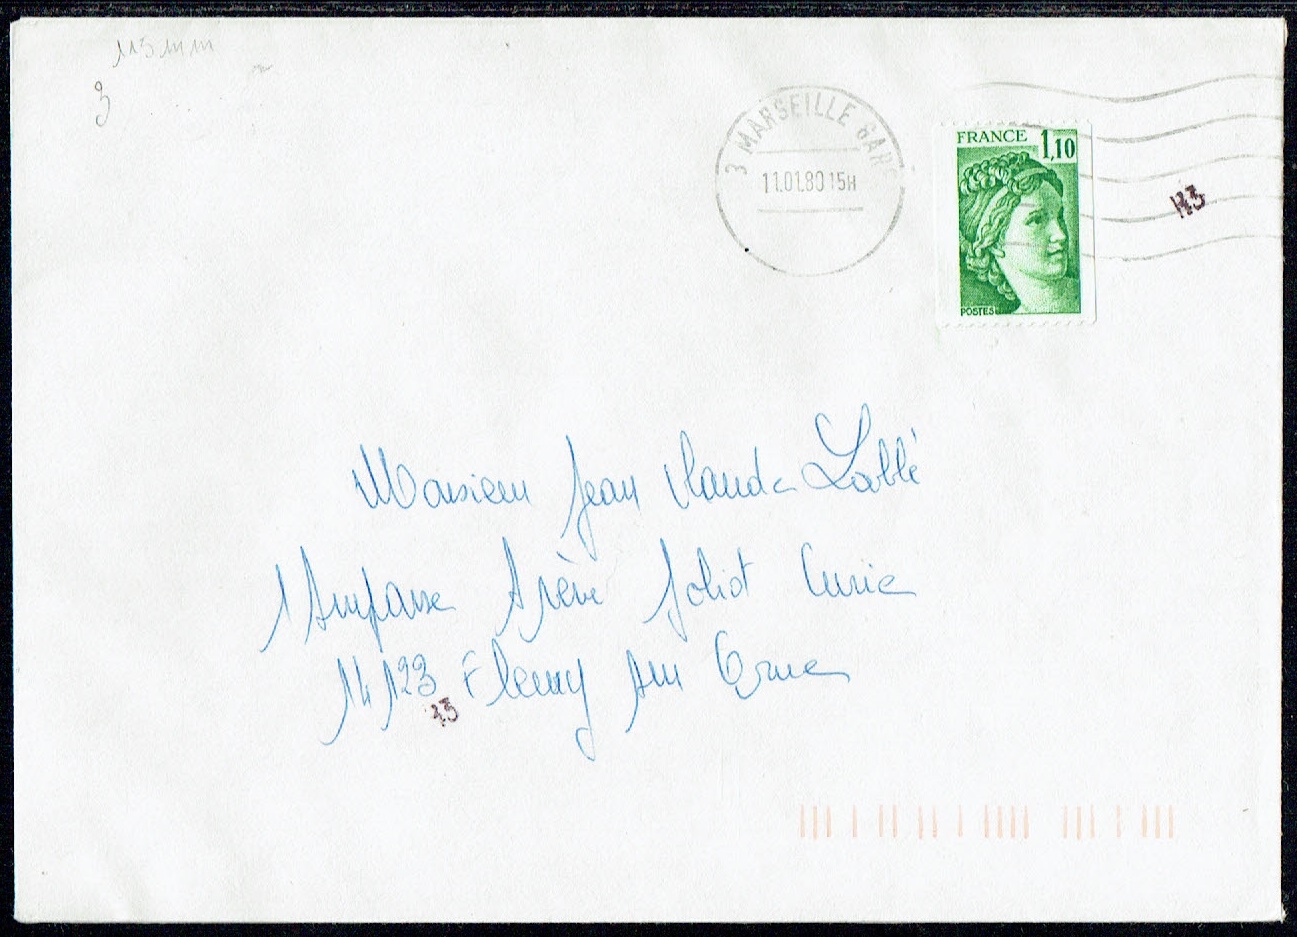 113 mm
3
3 MARSEILLE GARE
11.01.80 15H
FRANCE 1,10
POSTES
113
Monsieur Jean Claude Lablé
1 Impasse Irène Joliot Curie
14123 Fleury sur Orne